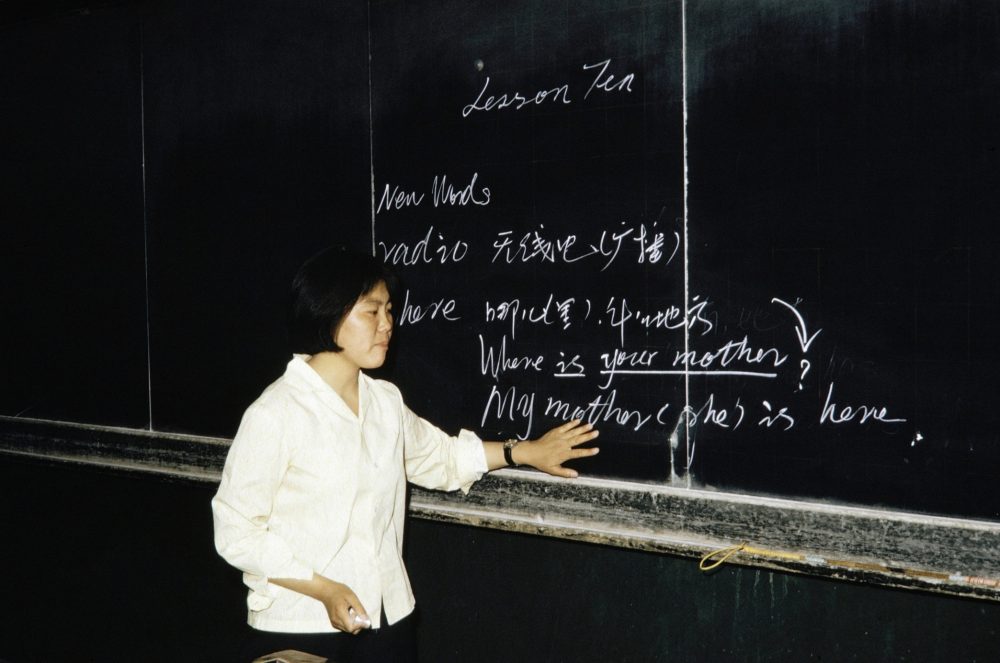 Lesson Ten
New Words
radio 无线电、(广播)
here 哪儿(里), 什么地方
Where is your mother?
My mother (she) is here